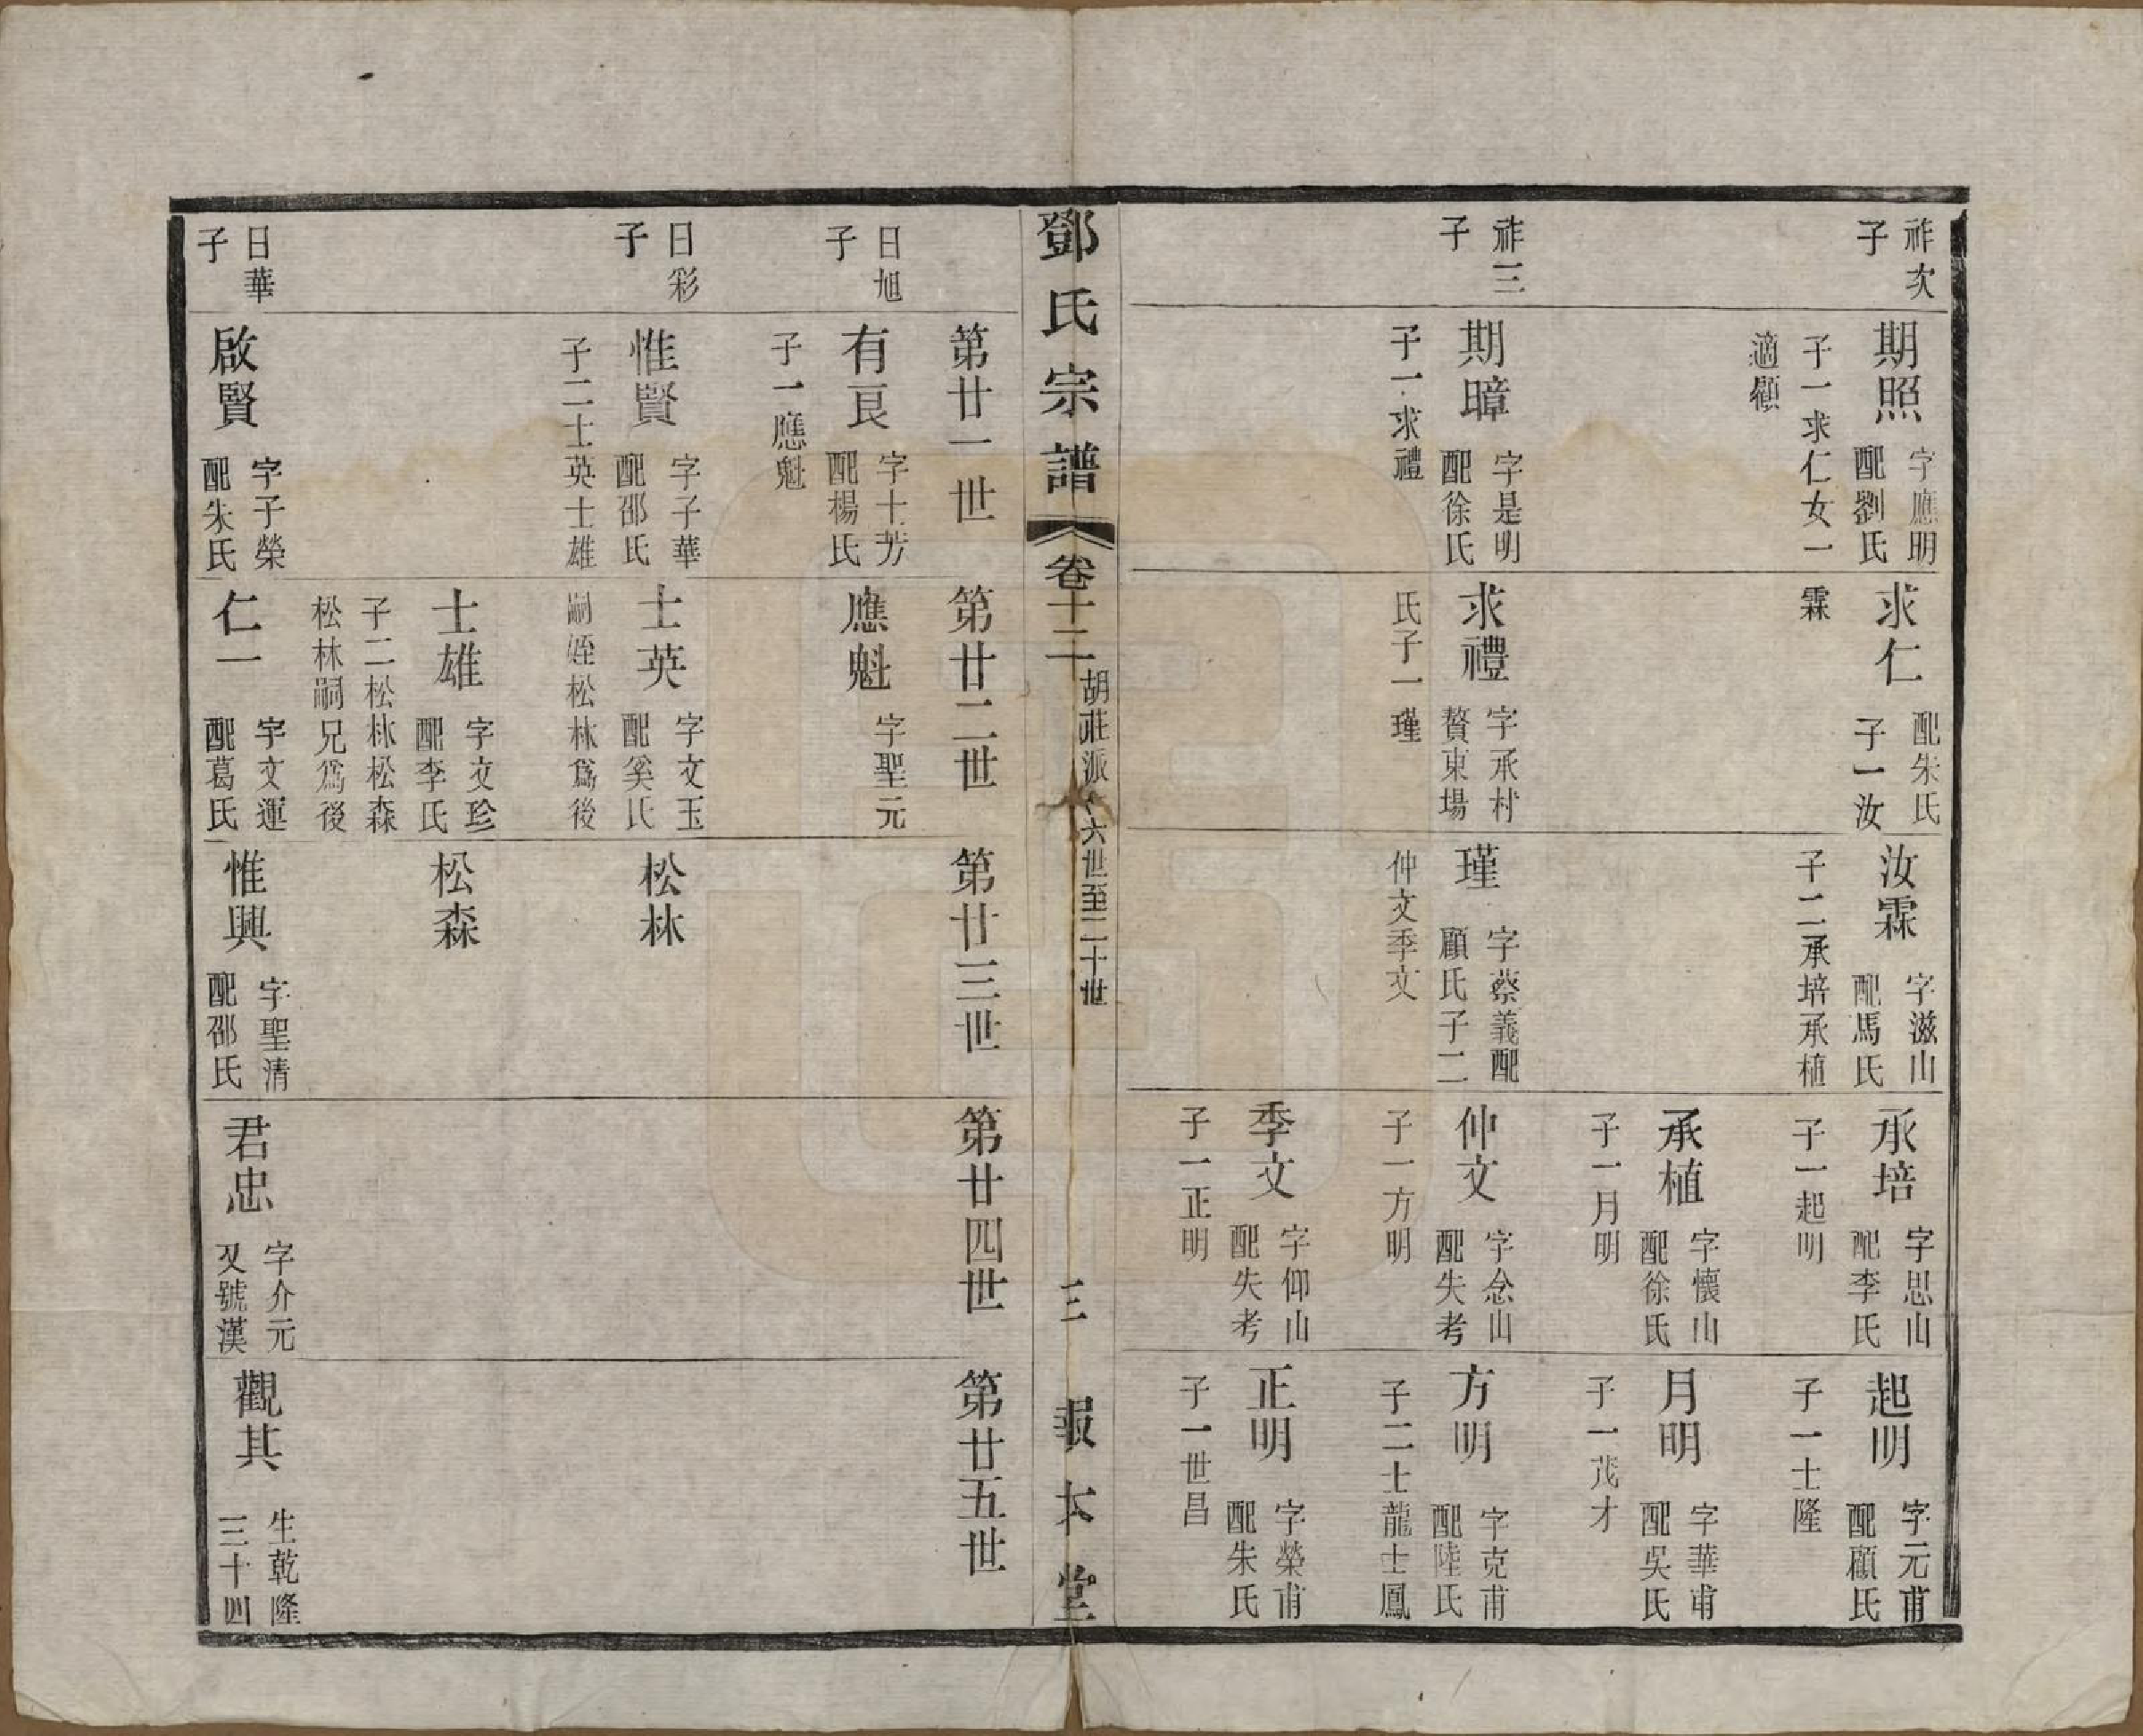 祚次
子
期照
字應明
配劉氏
子一求仁女一
適顧
求仁
配朱氏
子一汝
霖
汝霖
字滋山
配馬氏
子二承培承植
承培
字思山
配李氏
子一起明
承植
字懷山
配徐氏
子一月明
起明
字元甫
配顧氏
子一士隆
月明
字華甫
配吳氏
子一茂才
祚三
子
期暲
字是明
配徐氏
子一求禮
求禮
字承村
贅東場
氏子一瑾
瑾
字蔡義配
顧氏子二
仲文季文
仲文
字念山
配失考
子一方明
季文
字仰山
配失考
子一正明
方明
字克甫
配陸氏
子二士龍士鳳
正明
字榮甫
配朱氏
子一世昌
鄧氏宗譜
卷十二
胡莊派
六世至二十世
三
報本堂
第廿一世
第廿二世
第廿三世
第廿四世
第廿五世
日旭
子
有良
字十芳
配楊氏
子一應魁
應魁
字聖元
日彩
子
惟賢
字子華
配邵氏
子二士英士雄
士英
字文玉
配奚氏
嗣姪松林爲後
松林
士雄
字文珍
配李氏
子二松林松森
松林嗣兄爲後
松森
日華
子
啟賢
字子榮
配朱氏
仁一
字文運
配葛氏
惟興
字聖清
配邵氏
君忠
字介元
又號漢
觀其
生乾隆
三十四